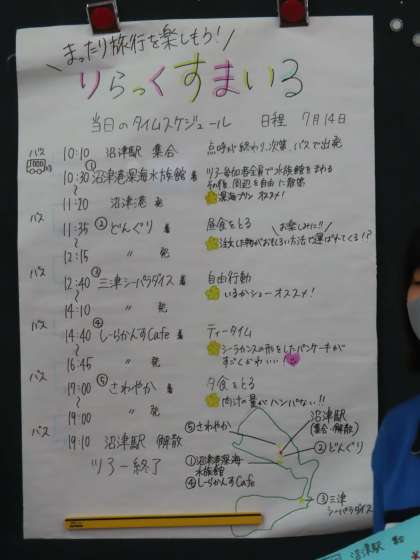 まったり旅行を楽しもう!
りらっくすまいる
当日のタイムスケジュール 日程 7月14日
バス 10:10 沼津駅 集合 点呼が終わり次第、バスで出発
① 10:30 沼津港深海水族館 着 ツアー参加者全員で水族館をまわる
〜 その後 周辺を自由に散策
11:20 沼津港 発 深海プリン オススメ!
バス
11:35 ②どんぐり 着 昼食をとる お楽しみに!!
〜 注文した物がおもしろい方法で運ばれてくる!?
12:15 〃 発
バス
12:40 ③三津シーパラダイス 着 自由行動
〜 いるかショー オススメ!
14:10 〃 発
バス
14:40 ④しーらかんすCafe 着 ティータイム
〜 シーラカンスの形をしたパンケーキが
16:45 〃 発 すごくかわいい!!
バス
17:00 ⑤さわやか 着 夕食をとる
〜 肉汁の量がハンパない!!
19:00 〃 発
バス
19:10 沼津駅 解散
ツアー終了
⑤さわやか
沼津駅
(集合・解散)
②どんぐり
①沼津港深海
水族館
④しーらかんすCafe
③三津
シーパラダイス
沼津駅